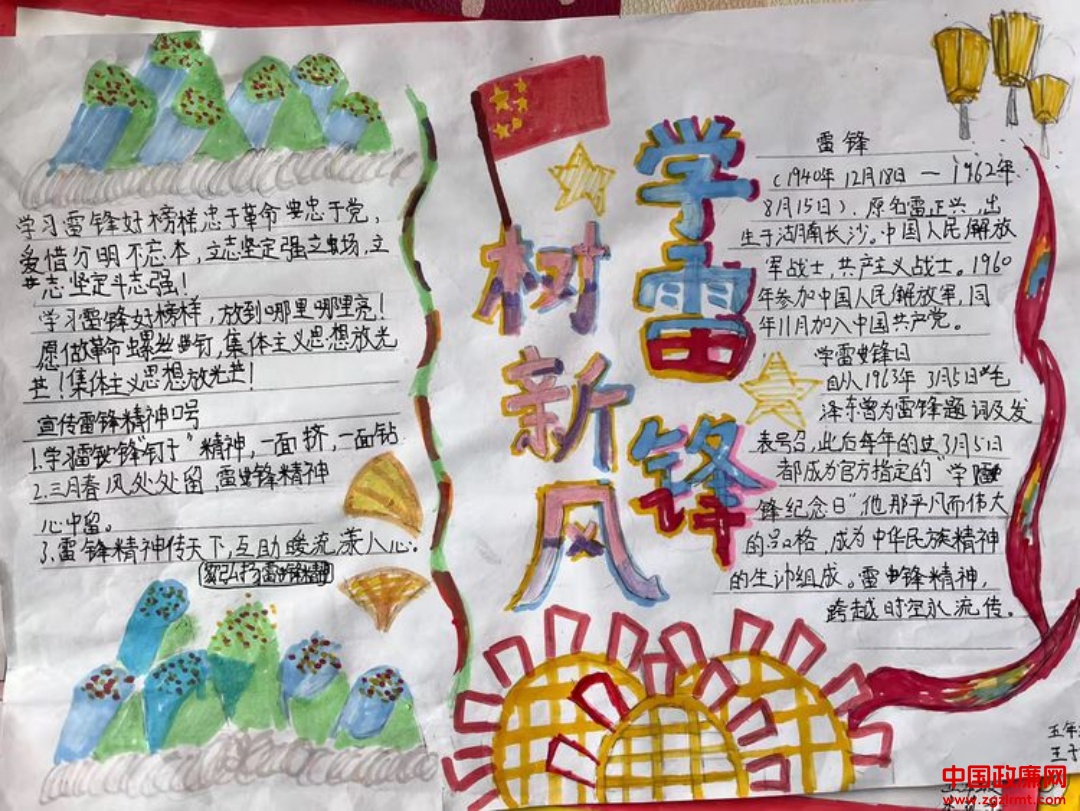 学雷锋
树新风
学习雷锋好榜样忠于革命忠于党，
爱惜分明不忘本，立志坚定强立场，立
志坚定斗志强！
学习雷锋好榜样，放到哪里哪里亮！
愿做革命螺丝钉，集体主义思想放光
芒！集体主义思想放光芒！
宣传雷锋精神口号
1.学习雷锋“钉子”精神，一面挤，一面钻
2.三月春风处处留，雷锋精神
心中留。
3.雷锋精神传天下，互助暖流漾人心。
弘扬雷锋精神
雷锋
（1940年12月18日 — 1962年
8月15日），原名雷正兴，出
生于湖南长沙。中国人民解放
军战士，共产主义战士。1960
年参加中国人民解放军，同
年11月加入中国共产党。
学雷锋日
自从1963年3月5日毛
泽东曾为雷锋题词及发
表号召，此后每年的3月5日
都成为官方指定的“学雷
锋纪念日”他那平凡而伟大
的品格，成为中华民族精神
的生动组成。雷锋精神，
跨越时空永流传。
五年
王子
中国政廉网
www.zgzlmt.com